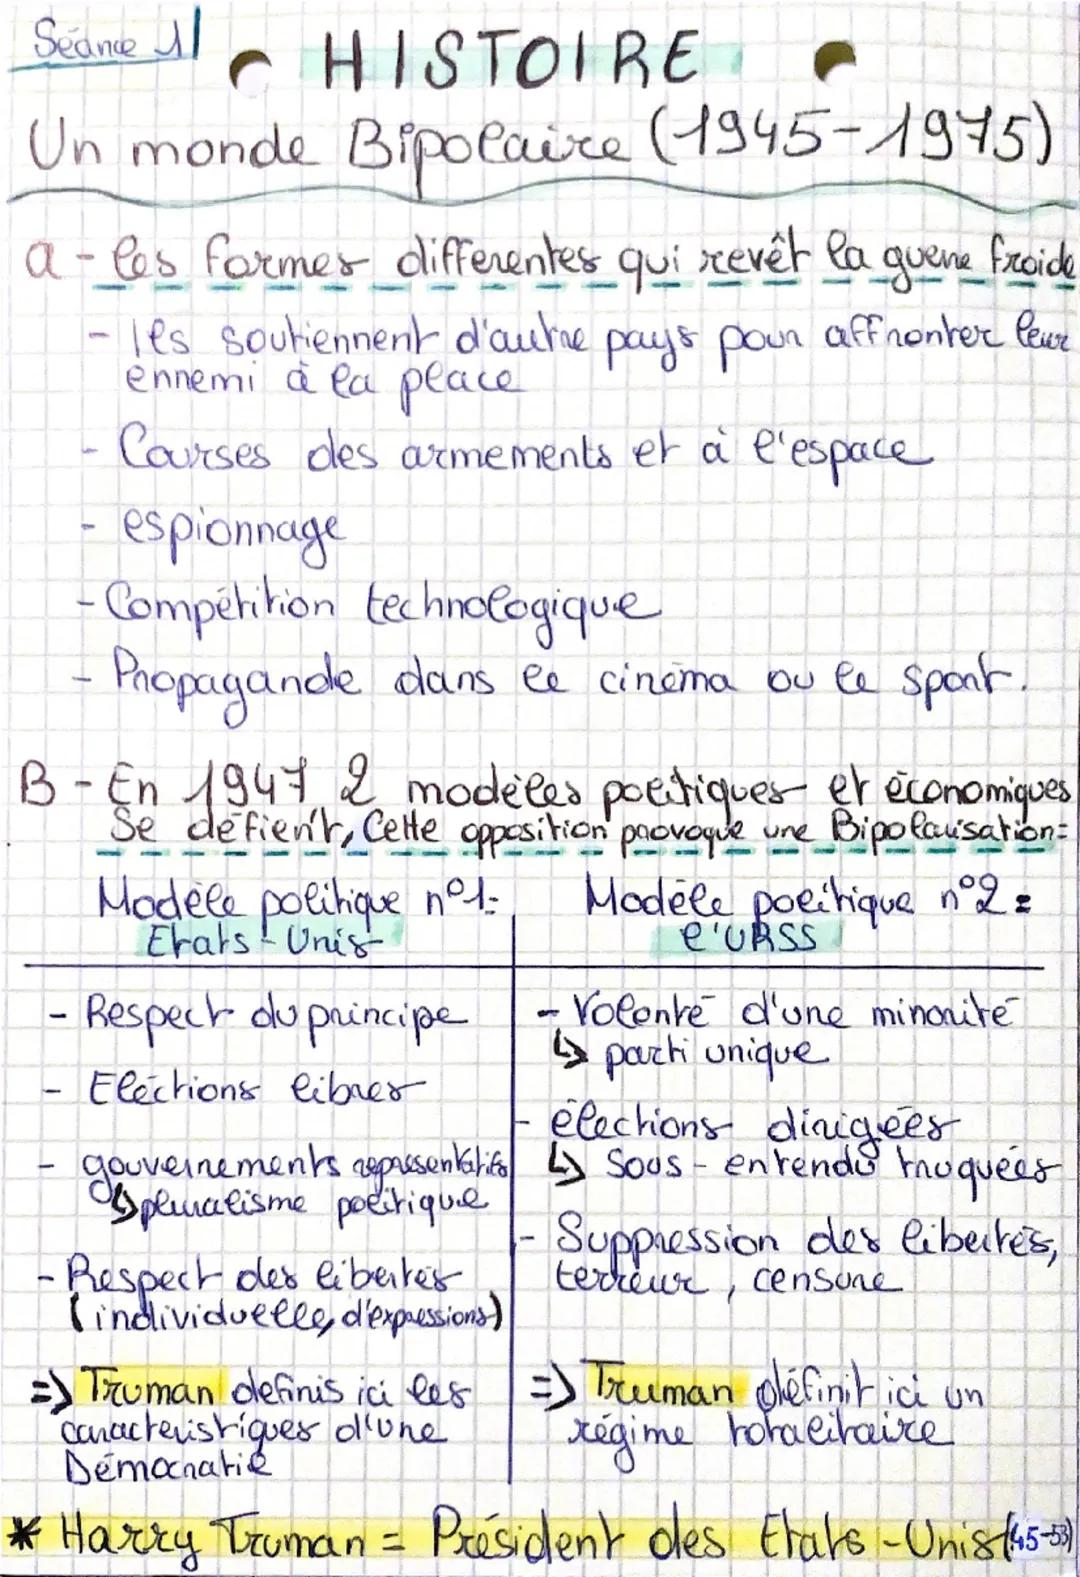 Séance 1
HISTOIRE
Un monde Bipolaire (1945-1975)
a - les formes differentes qui revêt la guerre froide
- Ils soutiennent d'autre pays pour affronter leur
ennemi à la place
- Courses des armements et à l'espace
- espionnage
- Compétition technologique
- Propagande dans le cinéma ou le sport.
B - En 1947 2 modèles politiques et économiques
Se défient, Cette opposition provoque une Bipolarisation:
Modèle politique n°1:
Etats-Unis
- Respect du principe
- Eléctions libres
- gouvernements représentatifs
↳ pluralisme politique
- Respect des libertés
(individuelle, d'expressions)
=> Truman définis ici les
caractéristiques d'une
Démocratie
Modèle politique n°2:
l'URSS
- Volonté d'une minorité
↳ parti unique
- élections dirigées
↳ Sous-entendu truquées
- Suppression des libertés,
terreur, censure
=> Truman définit ici un
régime totalitaire
* Harry Truman = Président des Etats-Unis (45-53)